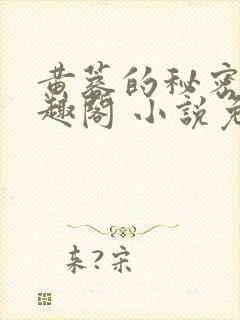 黄蓉的秘密
趣阁 小说免
来?宋